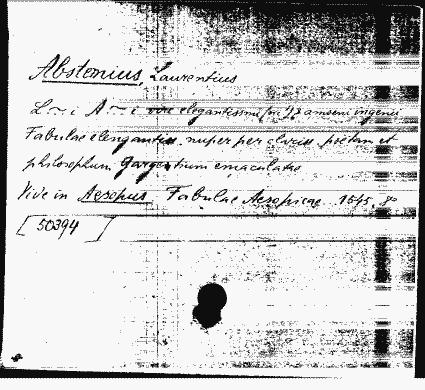 Abstemius, Laurentius
L~i A~i viri elegantissimi (sic!) & amoeni ingenii
Fabulae elegantiss. nuper per clariss. poetam et
philosophum Gargentium emaculatae
Vide in Aesopus Fabulae Aesopicae. 1545. 8°
[50394]